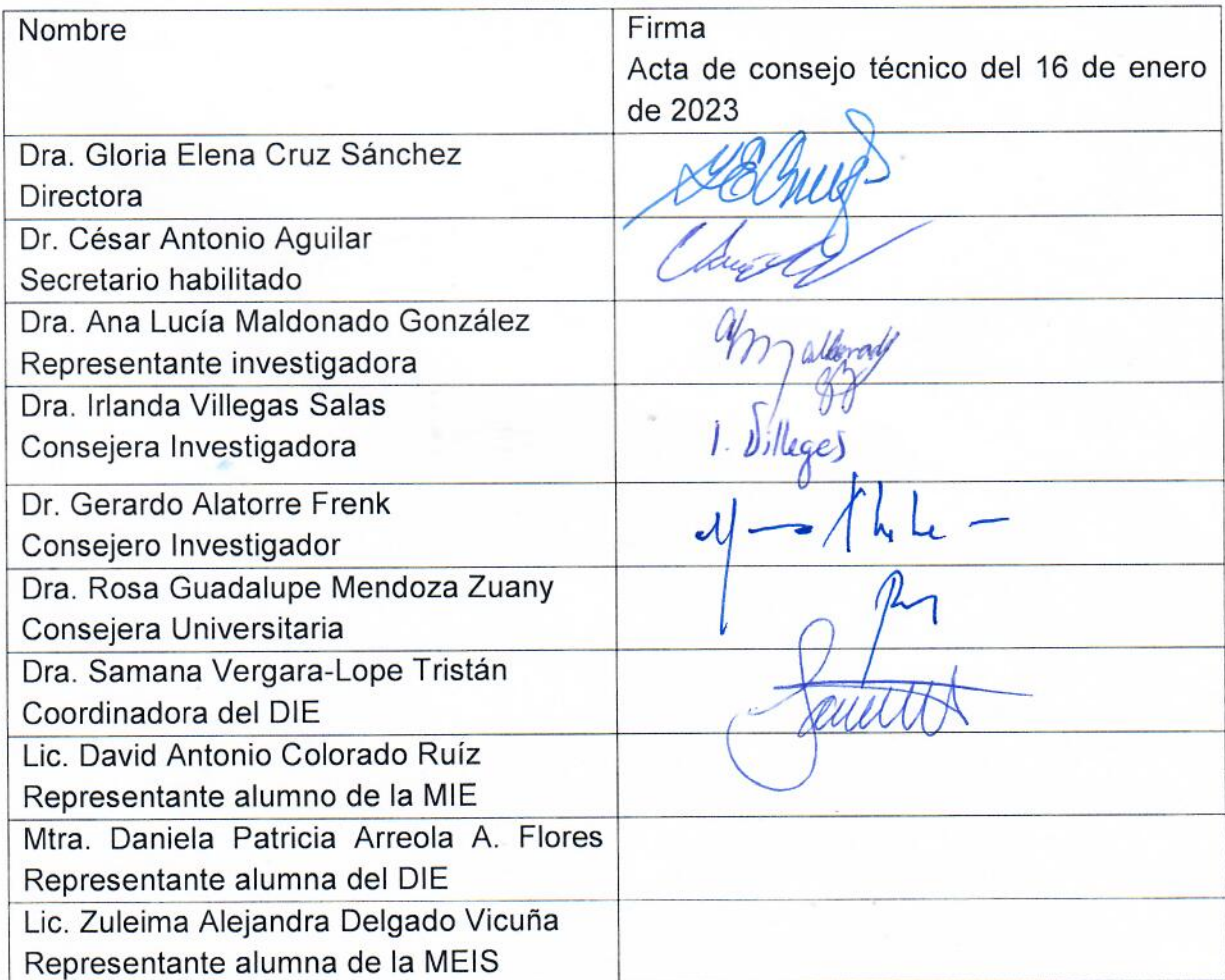 Nombre
Firma
Acta de consejo técnico del 16 de enero
de 2023
Dra. Gloria Elena Cruz Sánchez
Directora
Dr. César Antonio Aguilar
Secretario habilitado
Dra. Ana Lucía Maldonado González
Representante investigadora
Dra. Irlanda Villegas Salas
Consejera Investigadora
I. Villegas
Dr. Gerardo Alatorre Frenk
Consejero Investigador
Dra. Rosa Guadalupe Mendoza Zuany
Consejera Universitaria
Dra. Samana Vergara-Lope Tristán
Coordinadora del DIE
Lic. David Antonio Colorado Ruíz
Representante alumno de la MIE
Mtra. Daniela Patricia Arreola A. Flores
Representante alumna del DIE
Lic. Zuleima Alejandra Delgado Vicuña
Representante alumna de la MEIS